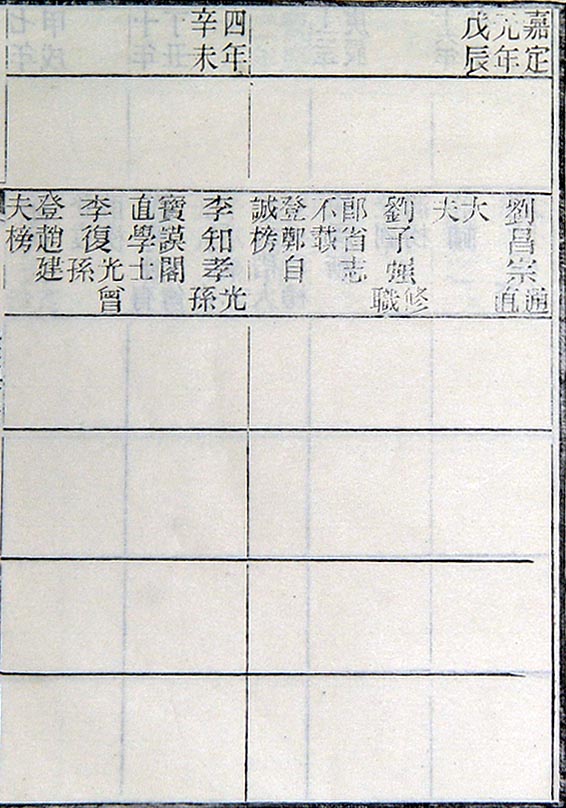 嘉定
元年
戊辰
四年
辛未
劉昌宗通
直
大
夫
劉子強修
職
郎省志
不載
登鄭自
誠榜
李知孝光
孫
寶謨閣
直學士
李復光曾
孫
登趙建
夫榜